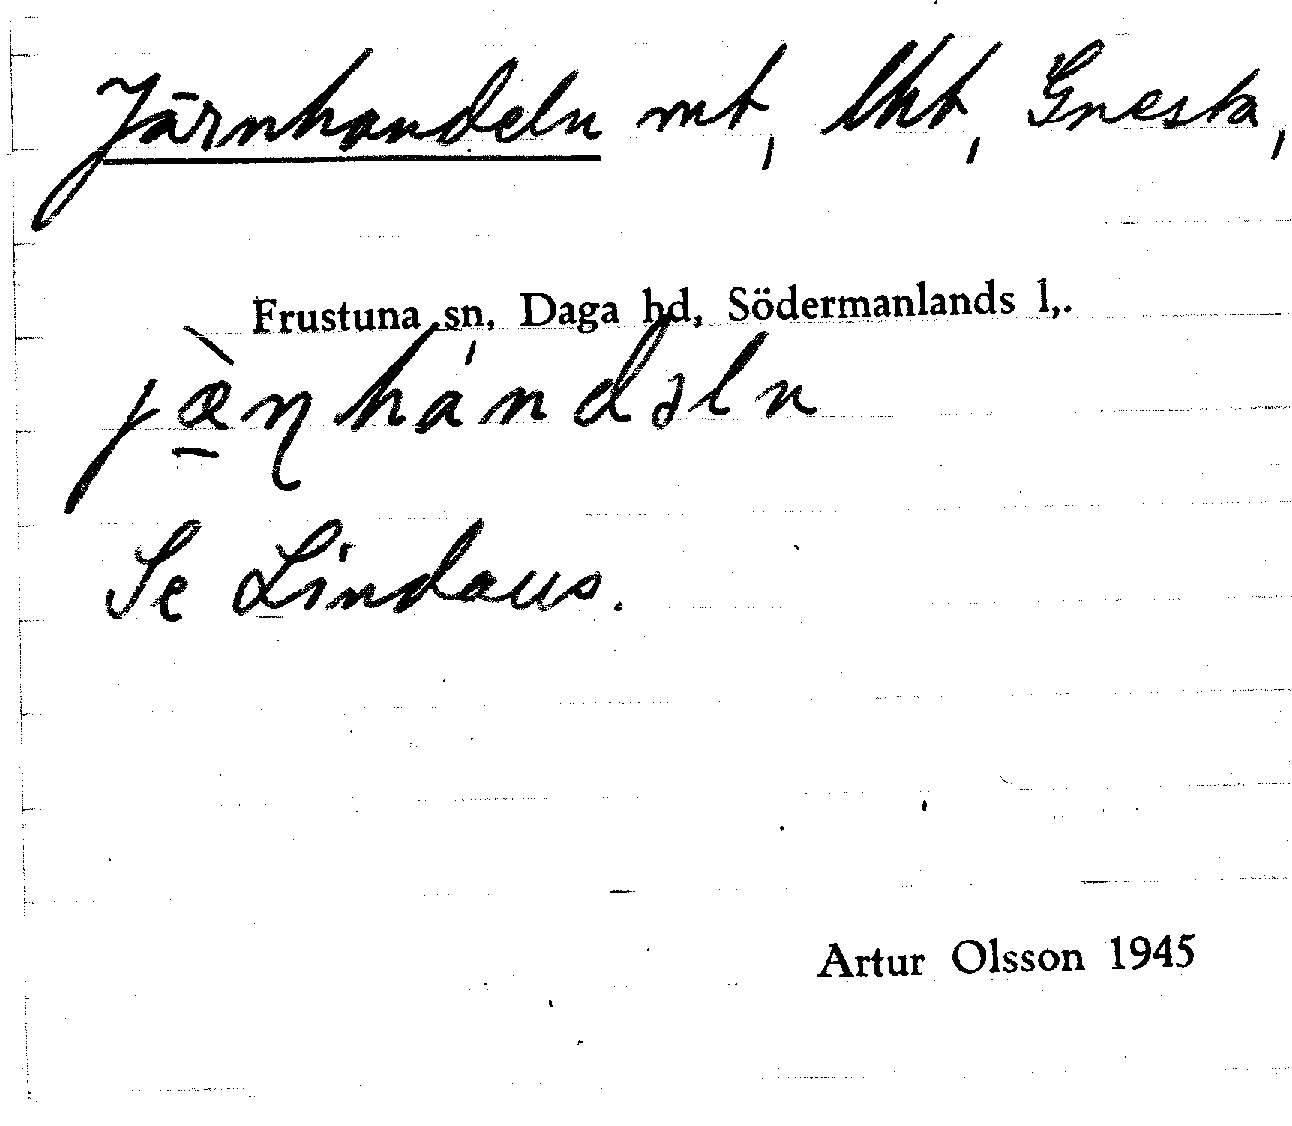 Järnhandeln mt, lht, Gnesta,
Frustuna sn, Daga hd, Södermanlands l,.
jæ̠̀ɳhándəln
Se Lindaus.
Artur Olsson 1945